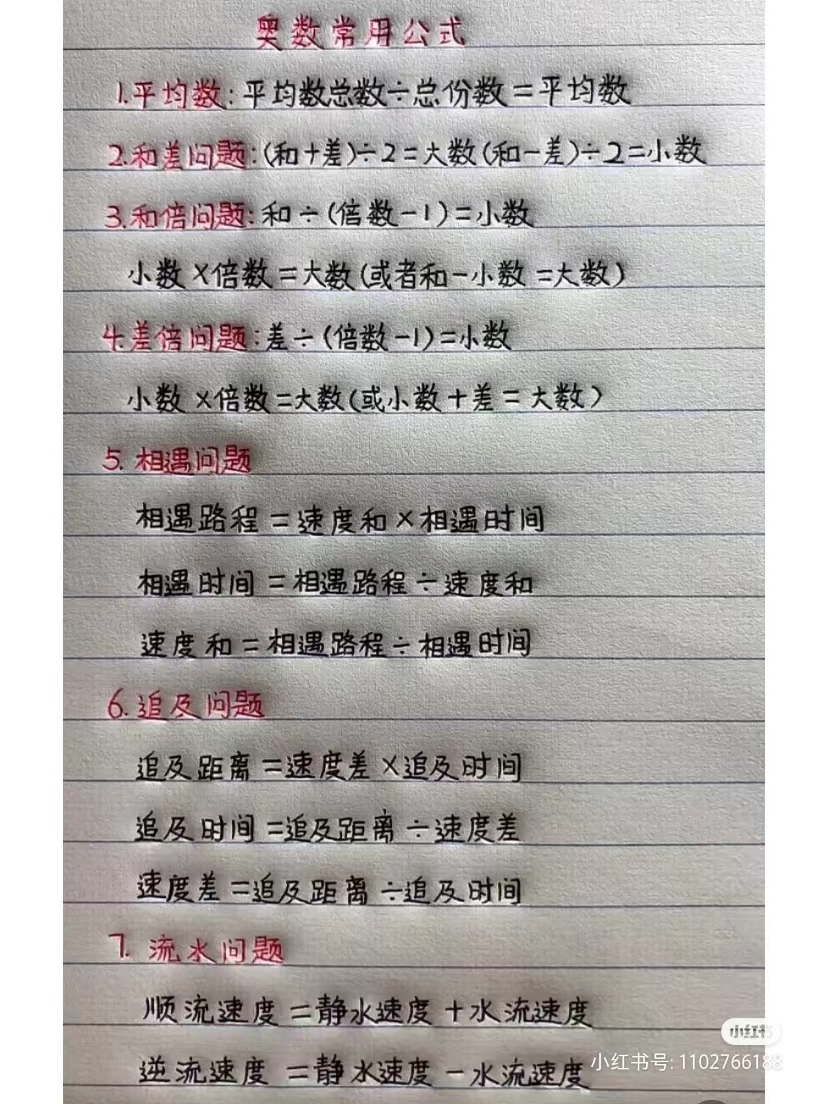 奥数常用公式
1.平均数:平均数总数÷总份数=平均数
2.和差问题:(和+差)÷2=大数(和-差)÷2=小数
3.和倍问题:和÷(倍数-1)=小数
小数×倍数=大数(或者和-小数=大数)
4.差倍问题:差÷(倍数-1)=小数
小数×倍数=大数(或小数+差=大数)
5.相遇问题
相遇路程=速度和×相遇时间
相遇时间=相遇路程÷速度和
速度和=相遇路程÷相遇时间
6.追及问题
追及距离=速度差×追及时间
追及时间=追及距离÷速度差
速度差=追及距离÷追及时间
7.流水问题
顺流速度=静水速度+水流速度
小红书
小红书号:1102766188
逆流速度=静水速度-水流速度